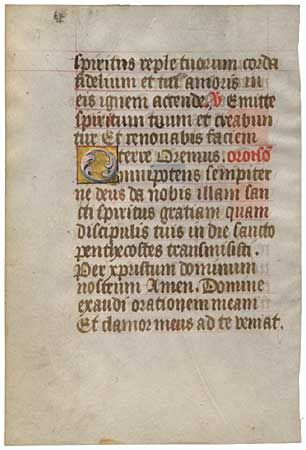 spiritus reple tuorum corda
fidelium et tui amoris in
eis ignem accende. V Emitte
spiritum tuum et creabun
tur Et renovabis faciem
terre Oremus. oroiso
Omnipotens sempiter
ne deus da nobis illam san
cti spiritus gratiam quam
discipulis tuis in die sancto
penthecostes transmisisti.
Per xpristum dominum
nostrum Amen. Domine
exaudi orationem meam
Et clamor meus ad te veniat.